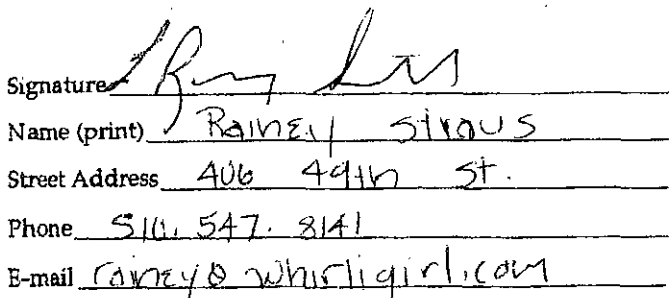 Signature
Name (print) Rainey Straus
Street Address 406 49th St.
Phone 510. 547. 8141
E-mail rainey@whirligirl.com